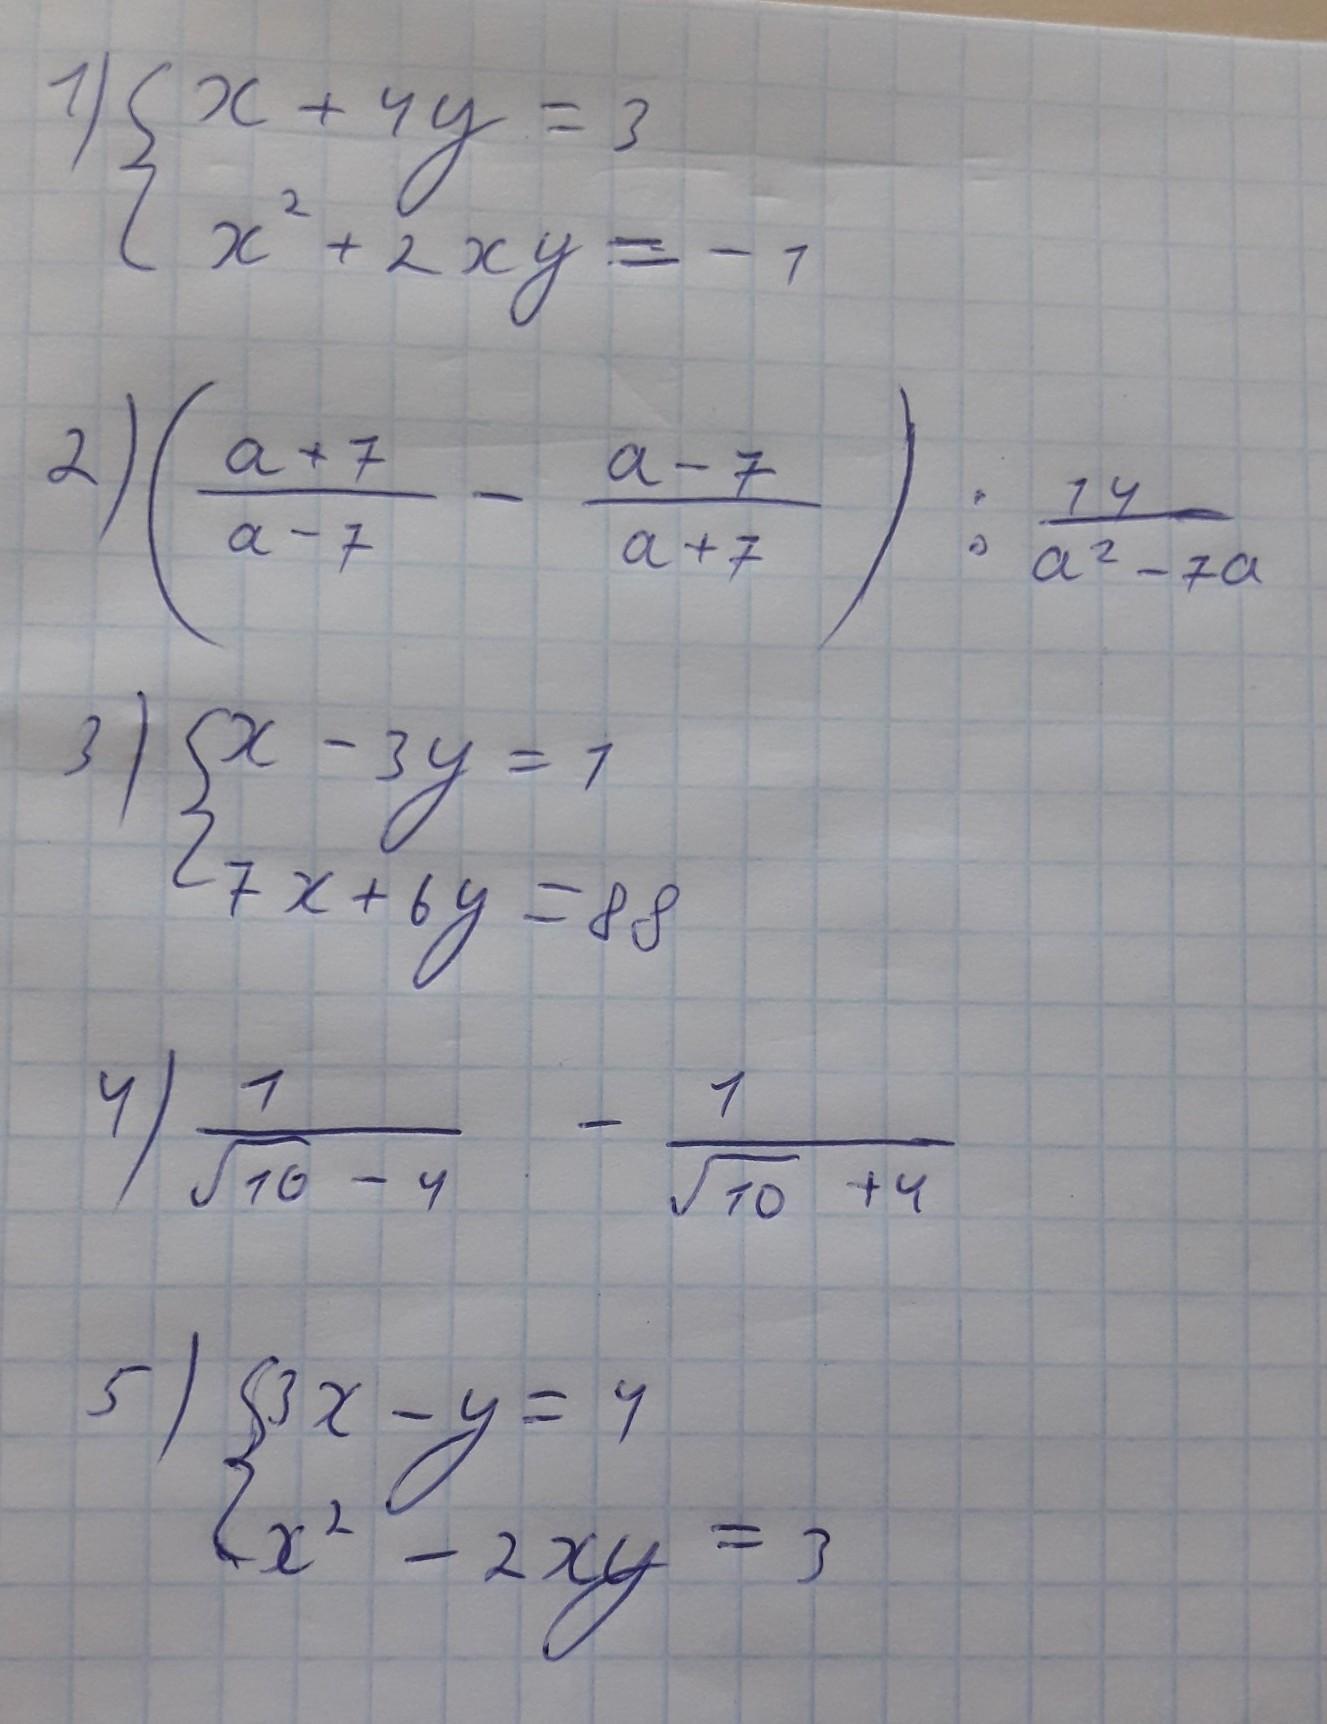 1) { x + 4y = 3
x² + 2xy = -1
2) ( (a+7)/(a-7) - (a-7)/(a+7) ) : 14/(a²-7a)
3) { x - 3y = 1
7x + 6y = 88
4) 1/(√10 - 4) - 1/(√10 + 4)
5) { 3x - y = 4
x² - 2xy = 3